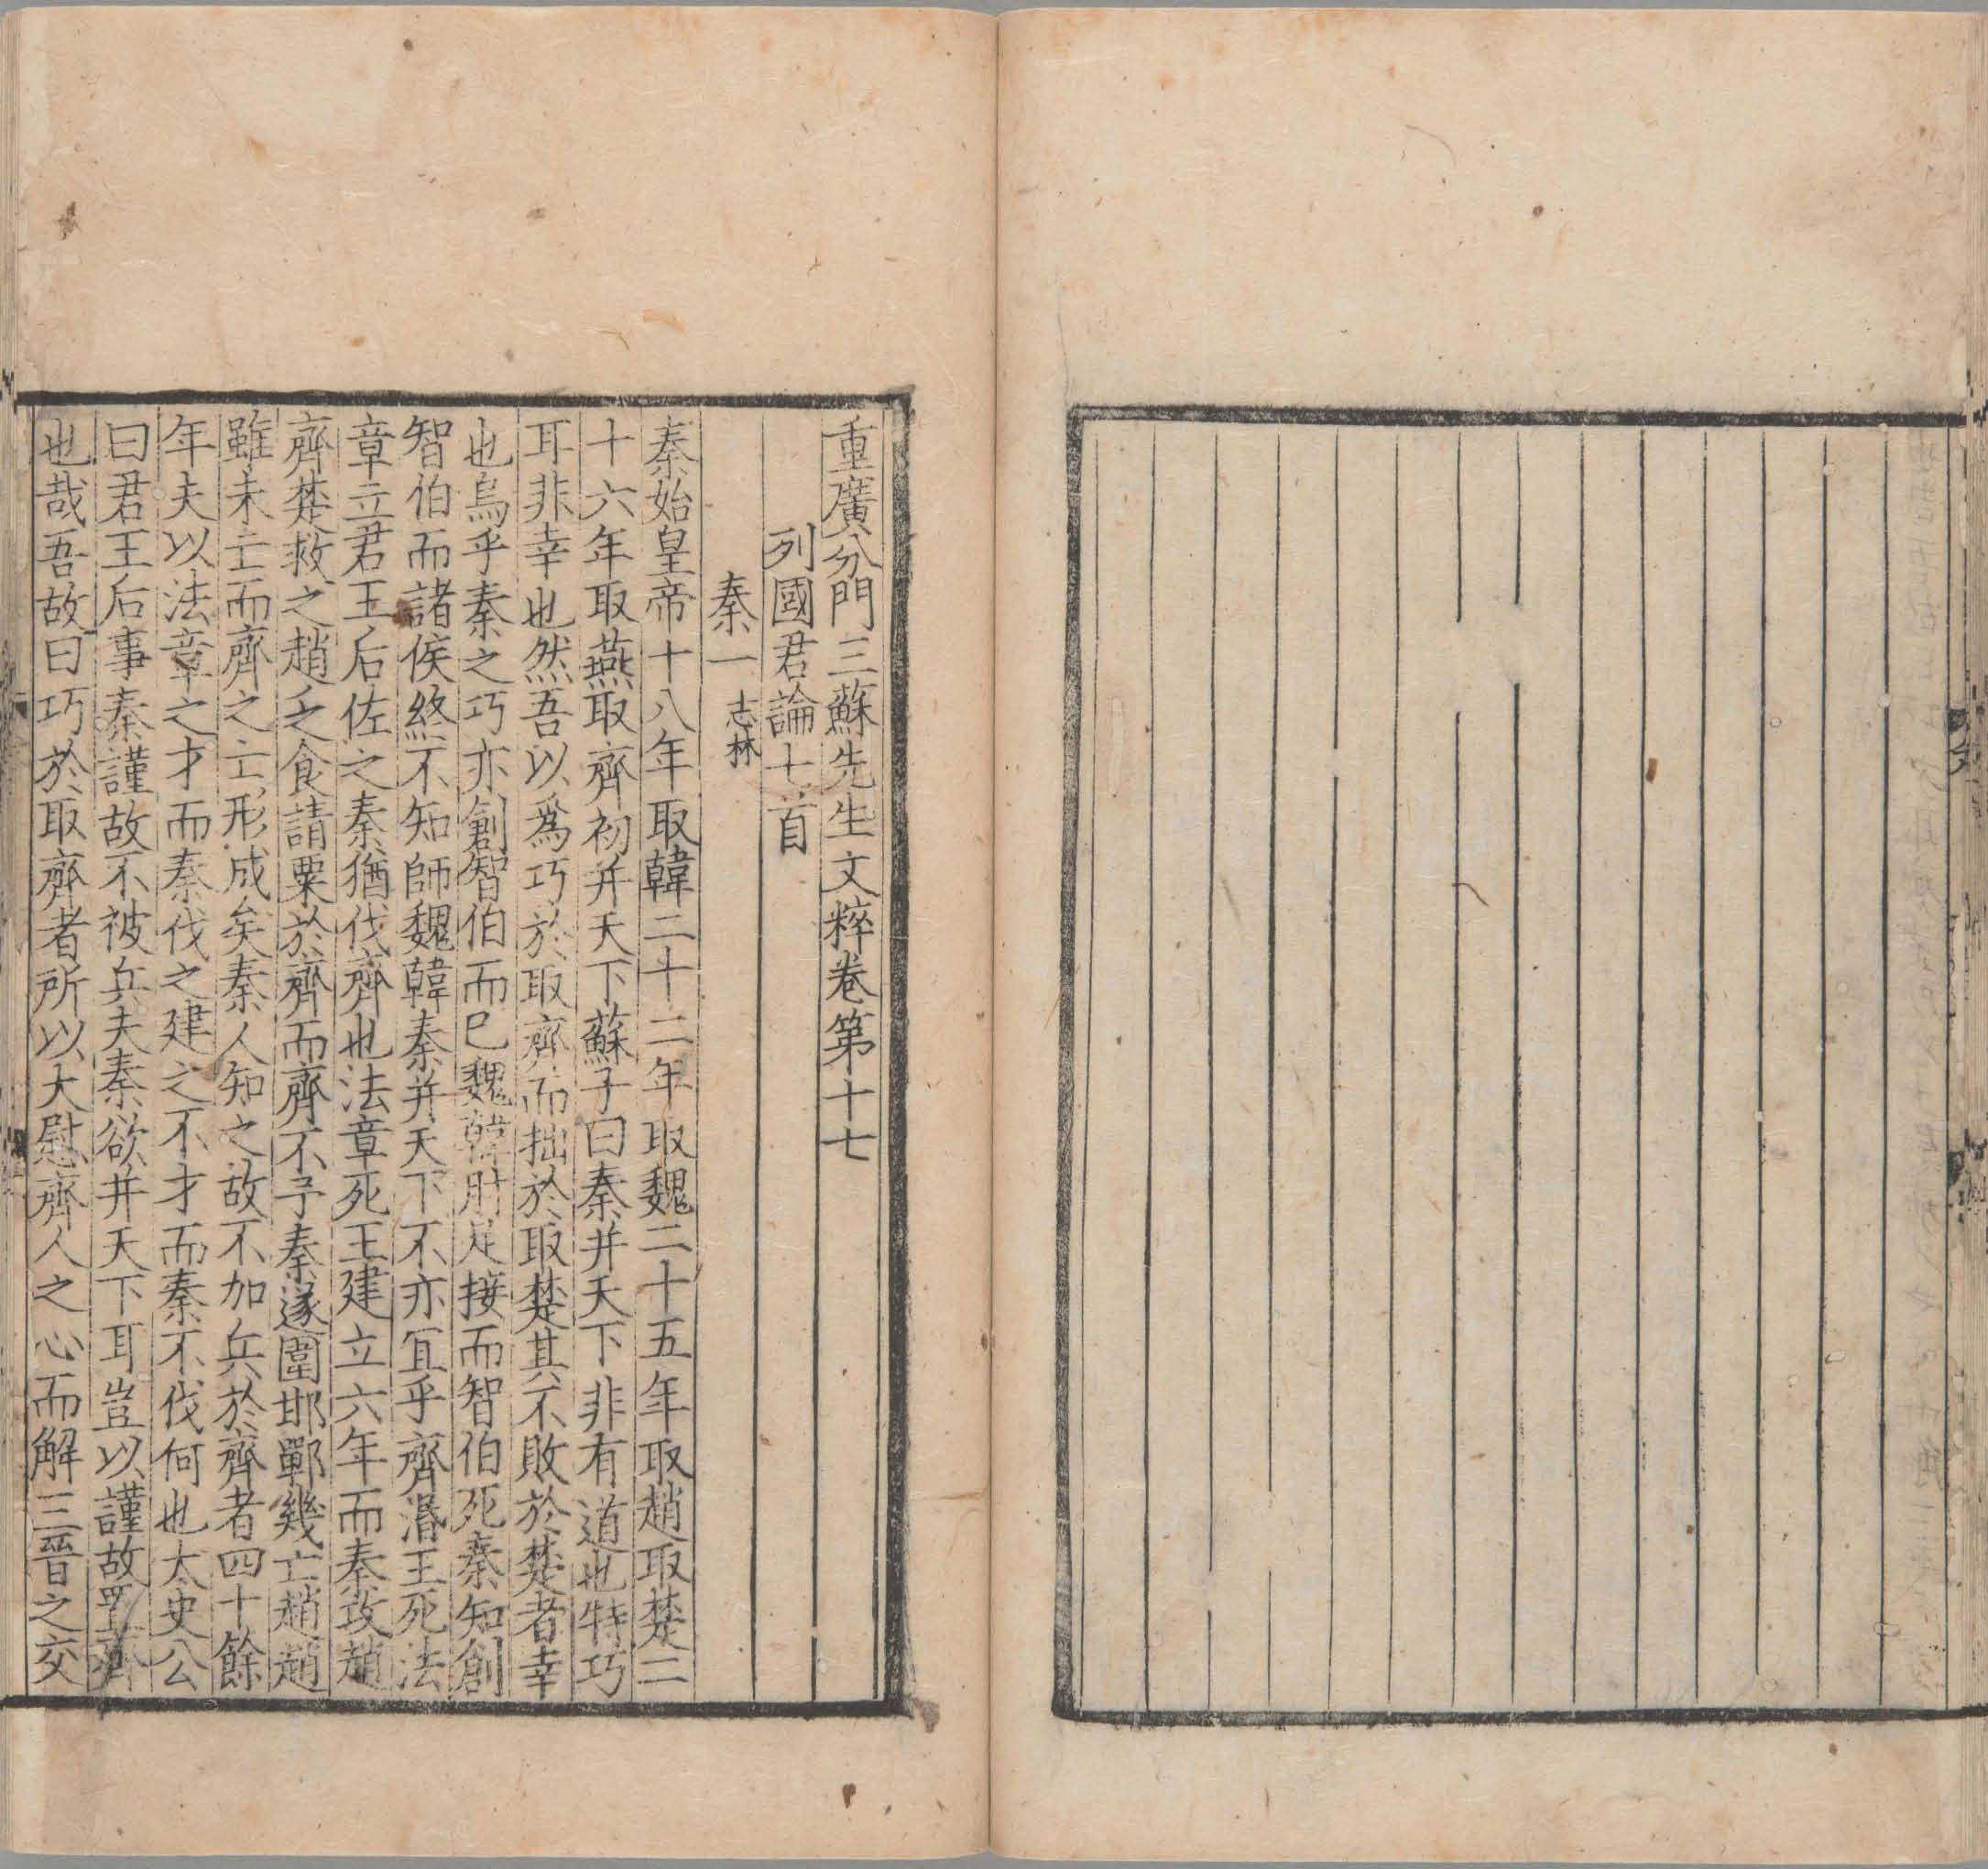 重廣分門三蘇先生文粹卷第十七
列國君論七首
秦一 志林
秦始皇帝十八年取韓二十二年取魏二十五年取趙取楚二
十六年取燕取齊初并天下蘇子曰秦并天下非有道也特巧
耳非幸也然吾以爲巧於取齊而拙於取楚其不敗於楚者幸
也烏乎秦之巧亦創智伯而已魏韓肘足接而智伯死秦知創
智伯而諸侯終不知師魏韓秦并天下不亦冝乎齊湣王死法
章立君王后佐之秦猶伐齊也法章死王建立六年而秦攻趙
齊楚救之趙乏食請粟於齊而齊不予秦遂圍邯鄲幾亡趙趙
雖未亡而齊之亡形成矣秦人知之故不加兵於齊者四十餘
年夫以法章之才而秦伐之建之不才而秦不伐何也太史公
曰君王后事秦謹故不被兵夫秦欲并天下耳豈以謹故置齊
也哉吾故曰巧於取齊者所以大慰齊人之心而解三晉之交